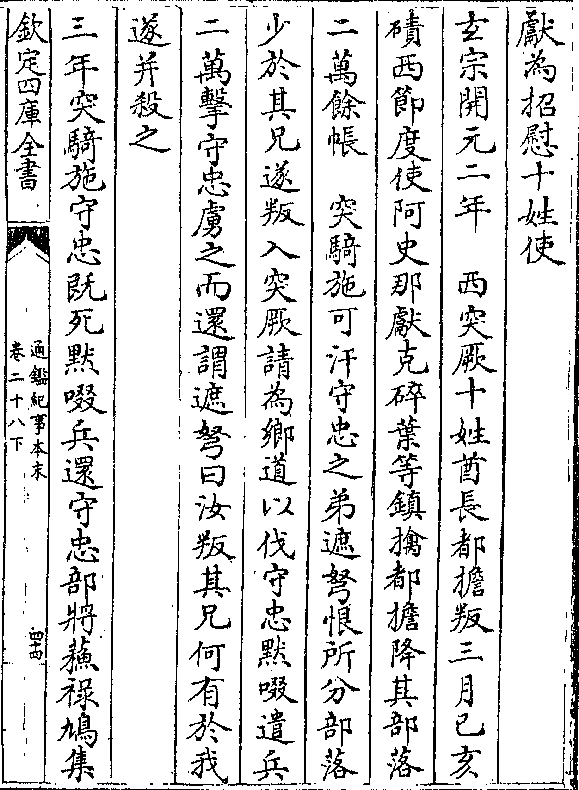 獻為招慰十姓使
玄宗開元二年　西突厥十姓酋長都擔叛三月己亥
磧西節度使阿史那獻克碎葉等鎮擒都擔降其部落
二萬餘帳　突騎施可汗守忠之弟遮弩恨所分部落
少於其兄遂叛入突厥請為鄉道以伐守忠默啜遣兵
二萬擊守忠虜之而還謂遮弩曰汝叛其兄何有於我
遂并殺之
三年突騎施守忠既死默啜兵還守忠部將蘓祿鳩集
欽定四庫全書
通鑑紀事本末
卷二十八下
四十四